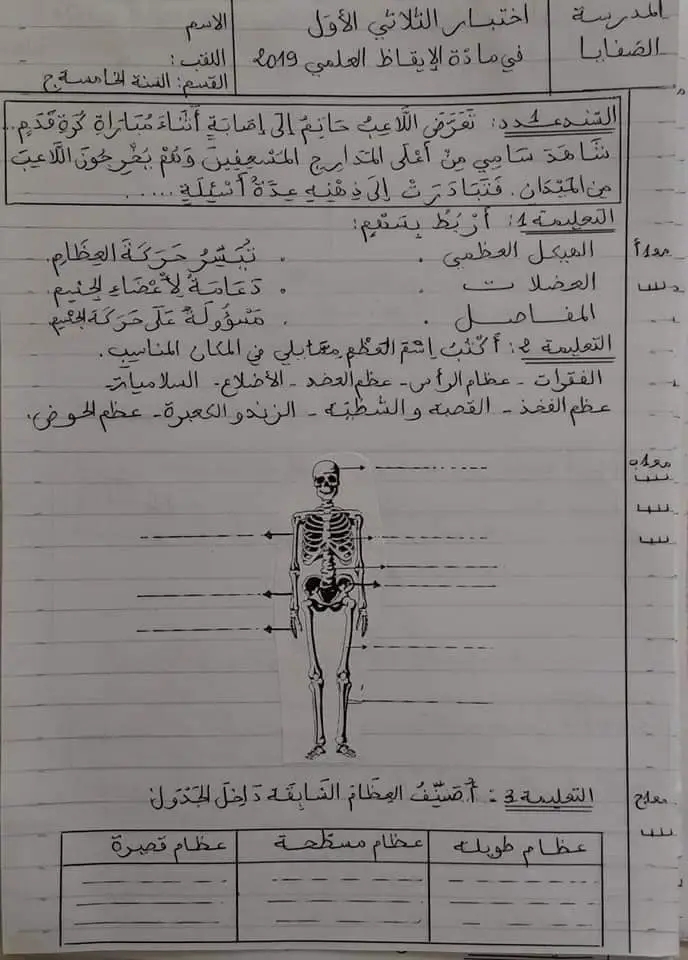 المدرسة
الصفايا
اختبار الثلاثي الأوّل
في مادّة الإيقاظ العلمي 2019
الاسم
اللقب :
القسم: السنة الخامسة ج
السّند عدد 1: تَعَرَّضَ اللَّاعِبُ حَاتِمُ إِلَى إِصَابَةٍ أَثْنَاءَ مُبَارَاةِ كُرَةِ قَدَمٍ..
شَاهَدَ سَامِي مِنْ أَعْلَى المَدَارِجِ المُسْعِفِينَ وَهُمْ يُخْرِجُونَ اللَّاعِبَ
مِنَ المَيْدَانِ. فَتَبَادَرَتْ إِلَى ذِهْنِهِ عِدَّةُ أَسْئِلَةٍ .....
التعليمة 1: أَرْبُطُ بِسَهْمٍ:
مع 1 أ
الهيكل العظمي . . تُيَسِّرُ حَرَكَةَ العِظَامِ.
العضلات . . دَعَامَةٌ لِأَعْضَاءِ الجِسْمِ
المفاصل . . مَسْؤُولَةٌ عَلَى حَرَكَةِ الجِسْمِ
التعليمة 2: أَكْتُبُ اِسْمَ العَظْمِ مقابلي في المكان المناسب.
الفقرات - عظام الرأس - عظم العضد - الأضلاع - السلاميات -
عظم الفخذ - القصبة والشظيّة - الزند والكعبرة - عظم الحوض.
مع 1 ب
التعليمة 3: أُصَنِّفُ العِظَامَ السَّابِقَةَ دَاخِلَ الجَدْوَل
مع 1 ج
عظام طويلة
عظام مسطحة
عظام قصيرة